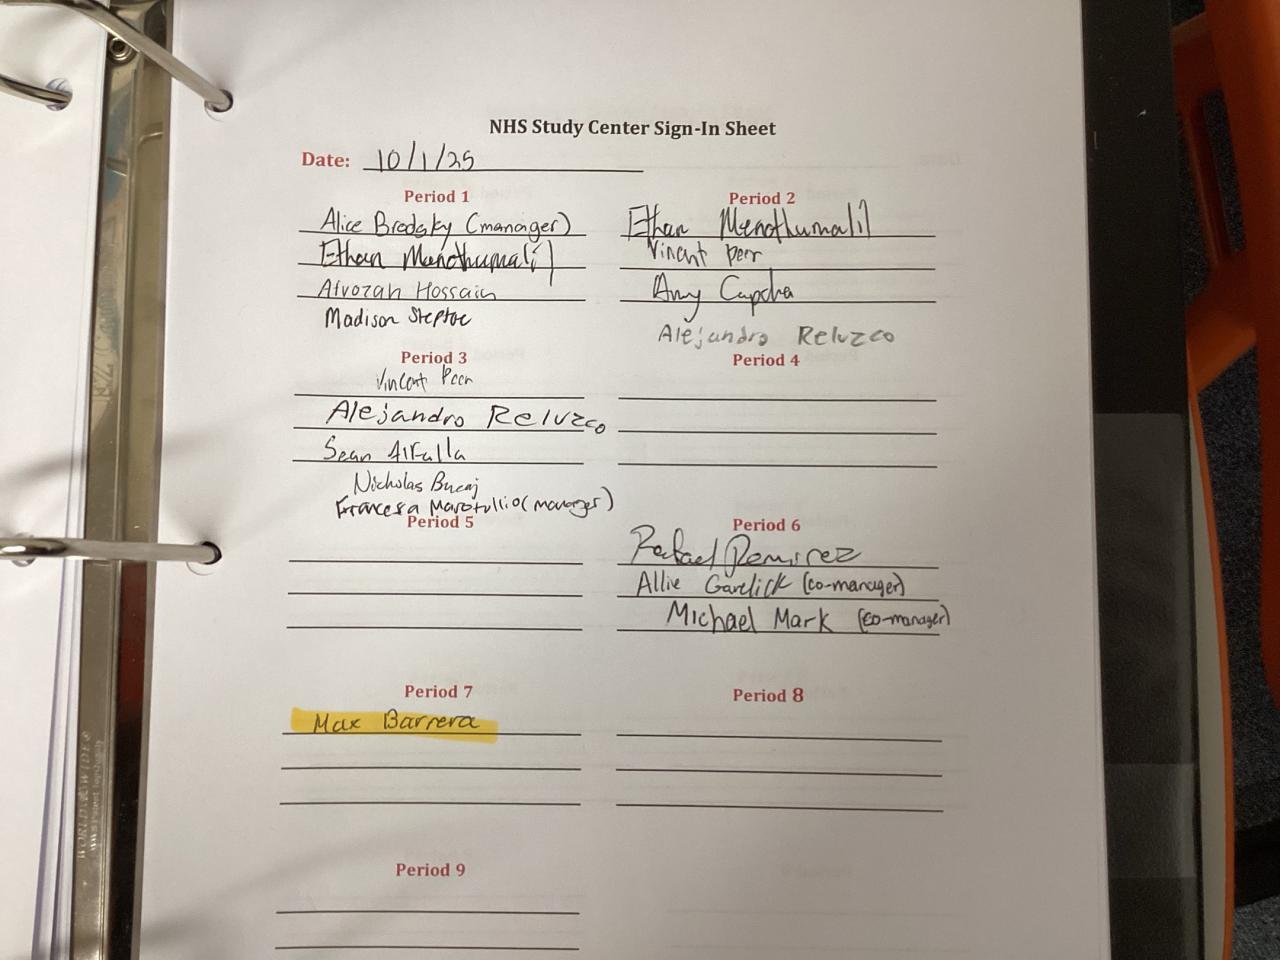 NHS Study Center Sign-In Sheet
Date: 10/1/25
Period 1
Alice Brodsky (manager)
Ethan Menothumalil
Hossain
Madison Steptoe
Period 2
Ethan Menothumalil
Vincent Peer
Amy Capcha
Alejandro Reluzco
Period 3
Vincent Peer
Alejandro Reluzco
Sean Alfalla
Nicholas Bucaj
Francesca Marotullio (manager)
Period 4
Period 5
Period 6
Rafael Remirez
Allie Garelick (co-manager)
Michael Mark (co-manager)
Period 7
Max Barrera
Period 8
Period 9